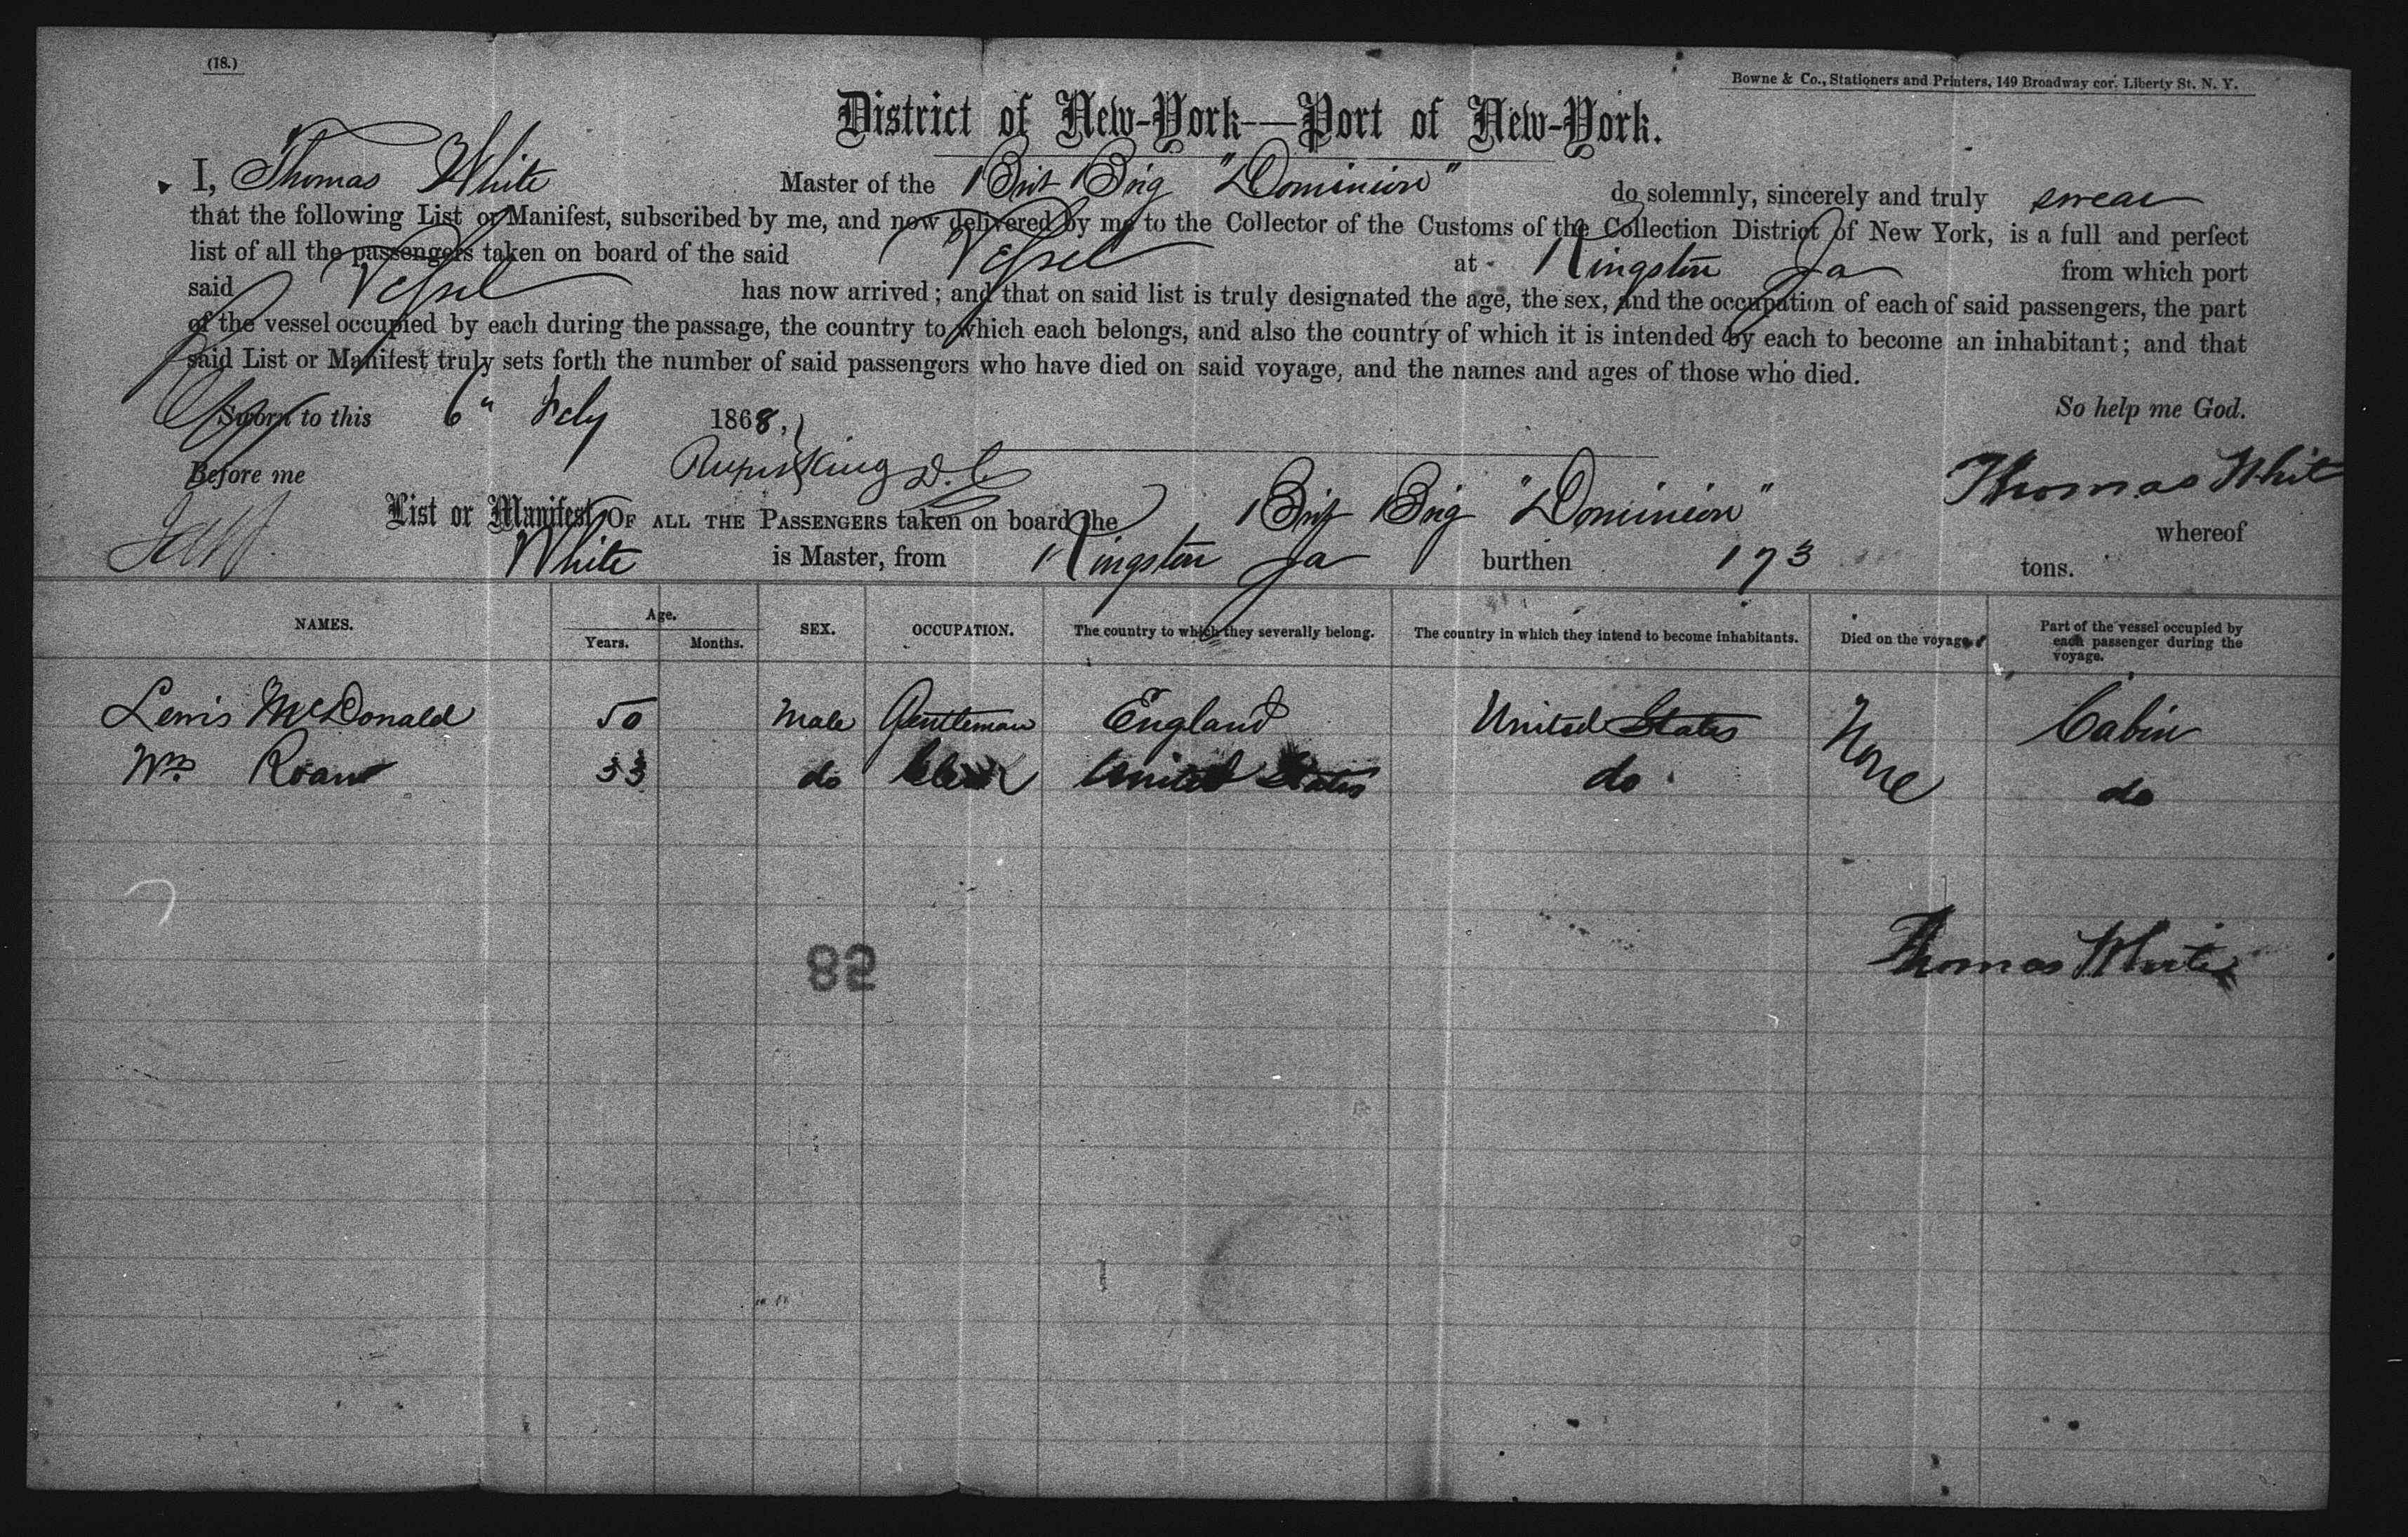 (18.)
Bowne & Co., Stationers and Printers, 149 Broadway cor. Liberty St. N. Y.
District of New-York—Port of New-York.
I, Thomas White Master of the Brit Brig "Dominion" do solemnly, sincerely and truly swear
that the following List or Manifest, subscribed by me, and now delivered by me to the Collector of the Customs of the Collection District of New York, is a full and perfect
list of all the passengers taken on board of the said Vessel at Kingston Ja from which port
said Vessel has now arrived; and that on said list is truly designated the age, the sex, and the occupation of each of said passengers, the part
of the vessel occupied by each during the passage, the country to which each belongs, and also the country of which it is intended by each to become an inhabitant; and that
said List or Manifest truly sets forth the number of said passengers who have died on said voyage, and the names and ages of those who died.
So help me God.
Sworn to this 6" 1868,
Before me Rufus King D. C. Thomas White
List or Manifest OF ALL THE PASSENGERS taken on board the Brit Brig "Dominion" whereof
White is Master, from Kingston Ja burthen 173 tons.
NAMES. Age. Years. Months. SEX. OCCUPATION. The country to which they severally belong. The country in which they intend to become inhabitants. Died on the voyage. Part of the vessel occupied by each passenger during the voyage.
Lewis McDonald 50 Male Gentleman England United States None Cabin
Wm. Roan 33 do Clerk United States do do
Thomas White
82